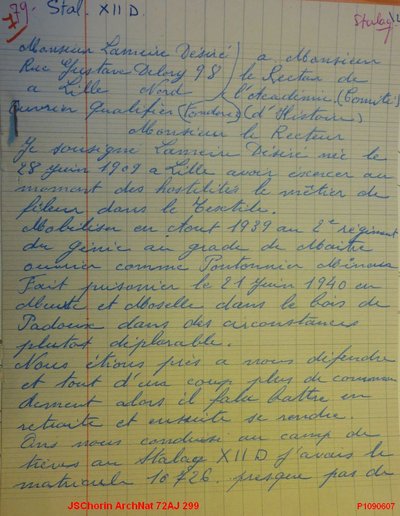 79. Stal. XII D
Stalag
Monsieur Lameire Désiré
Rue Gustave Delory 98
a Lille Nord
ouvrier qualifier
a Monsieur
le Recteur de
l'Académie (Comité
(d'Histoire)
Monsieur le Recteur
Je sousigne Lameire Désiré née le
28 juin 1909 a Lille avoir exercer au
moment des hostilités le métier de
fileur dans le Textile.
Mobiliser en Aout 1939 au 2e régiment
du génie au grade de Maitre
ouvrier comme Pontonnier Mineur
Fait prisonier le 21 juin 1940 en
Meurte et Moselle dans le bois de
Padoux dans des circonstances
plutot déplorable.
Nous étions près a nous défendre
et tout d'un coup plus de comman
dement alors il falu battre en
retraite et ensuite se rendre.
Ons nous conduisi au camp de
trèves au Stalag XII D j'avais le
matricule 16726. presque pas de
JSChorin ArchNat 72AJ 299
P1090607